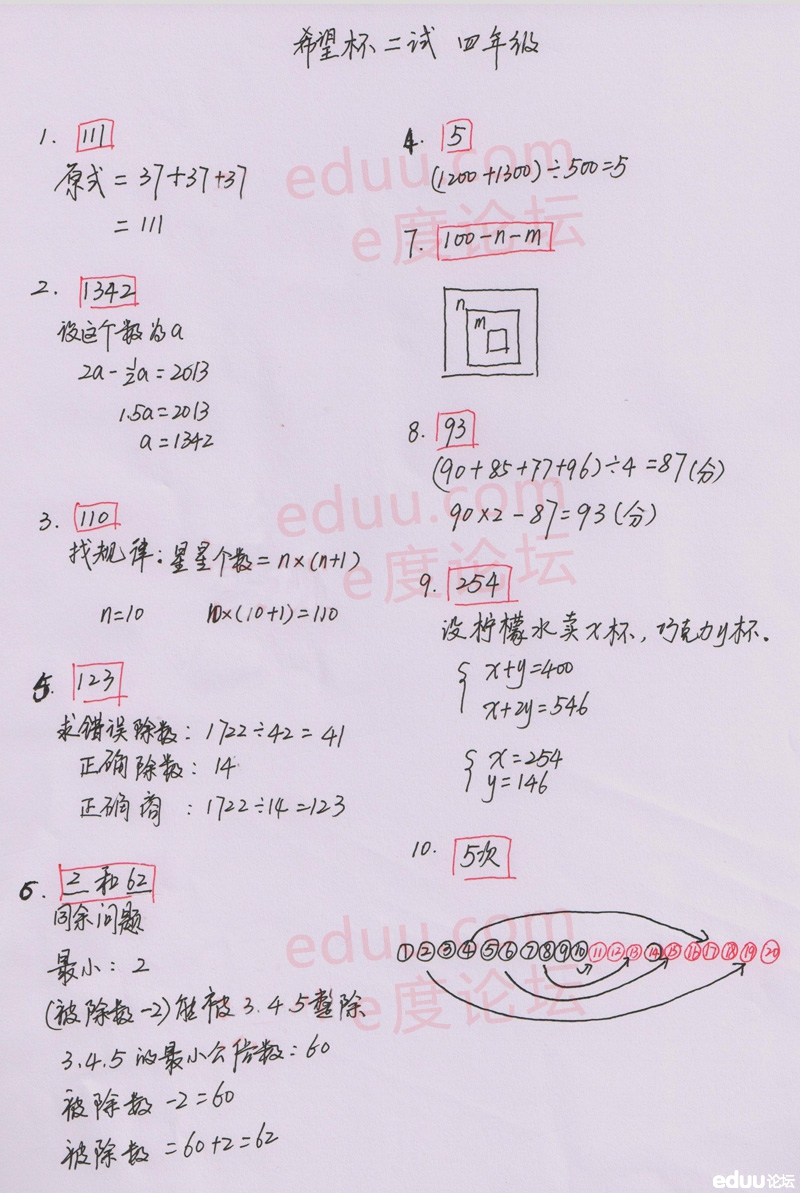 希望杯二试 四年级
1. 111
原式 = 37+37+37
= 111
2. 1342
设这个数为a
2a-½a=2013
1.5a=2013
a=1342
3. 110
找规律：星星个数=n×(n+1)
n=10 10×(10+1)=110
5. 123
求错误除数：1722÷42=41
正确除数：14
正确商：1722÷14=123
6. 2 和 62
同余问题
最小：2
(被除数-2)能被3.4.5整除
3.4.5的最小公倍数：60
被除数-2=60
被除数=60+2=62
4. 5
(1200+1300)÷500=5
7. 100-n-m
n
m
8. 93
(90+85+77+96)÷4=87(分)
90×2-87=93(分)
9. 254
设柠檬水卖x杯，巧克力y杯。
x+y=400
x+2y=546
x=254
y=146
10. 5次
①②③④⑤⑥⑦⑧⑨⑩⑪⑫⑬⑭⑮⑯⑰⑱⑲⑳
eduu.com
e度论坛
eduu.com
e度论坛
eduu.com
e度论坛
eduu论坛